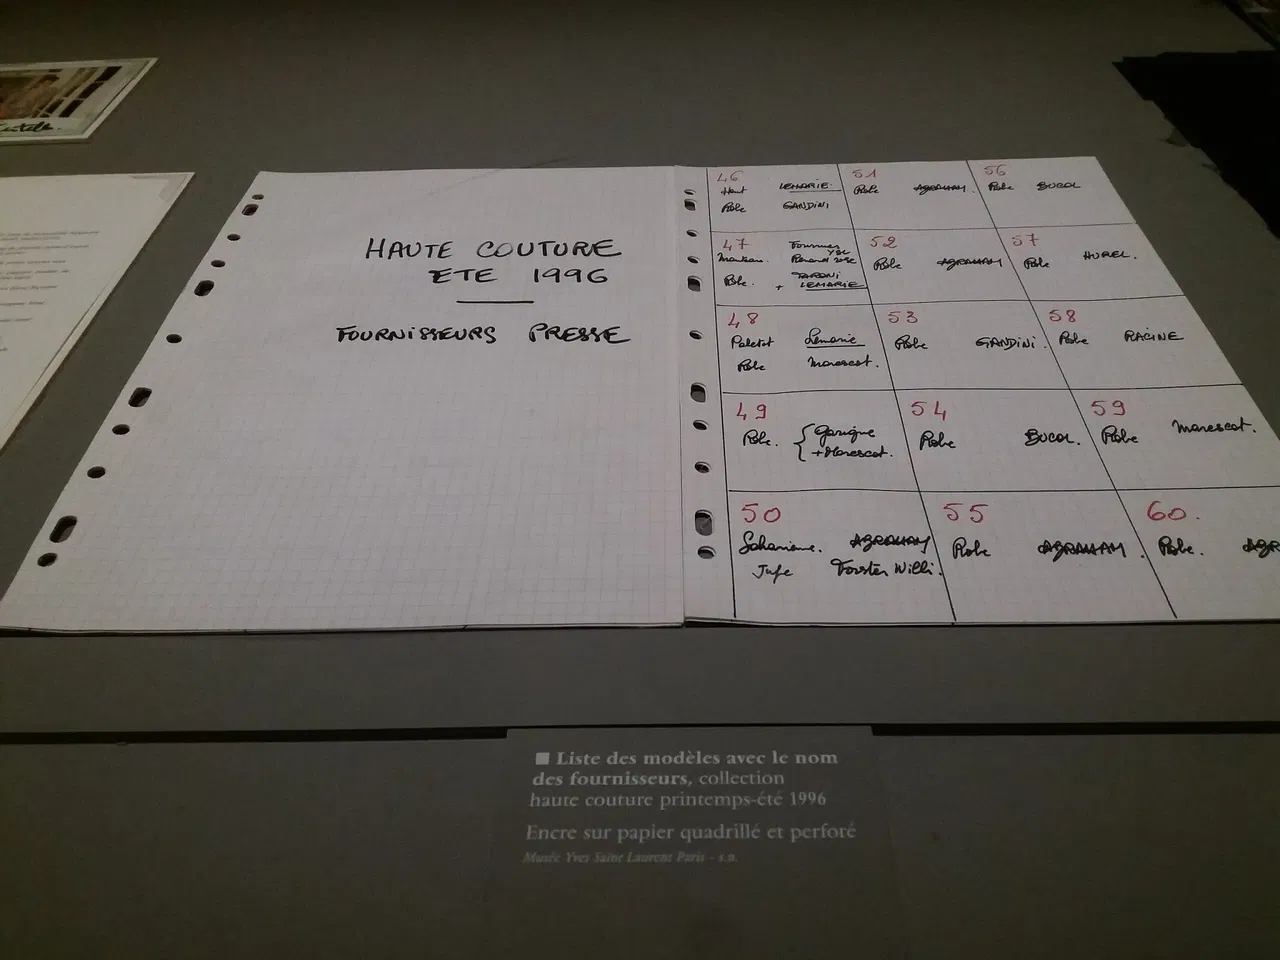 HAUTE COUTURE
ETE 1996
FOURNISSEURS PRESSE
46
Haut LEMARIE.
Robe GANDINI
47
Manteau. Fournier
YSL
Robe. TARONI
+ LEMARIE
48
Paletot Lemarie
Robe Marescot.
49
Robe. { Garigue
+Marescot.
50
Saharienne. ABRAHAM
Jupe Forster Willi.
51
Robe ABRAHAM.
52
Robe ABRAHAM
53
Robe GANDINI.
54
Robe BUCOL.
55
Robe ABRAHAM.
56
Robe BUCOL
57
Robe HUREL.
58
Robe RACINE
59
Robe Marescot.
60.
Robe. ABR
■ Liste des modèles avec le nom
des fournisseurs, collection
haute couture printemps-été 1996
Encre sur papier quadrillé et perforé
Musée Yves Saint Laurent Paris - s.n.